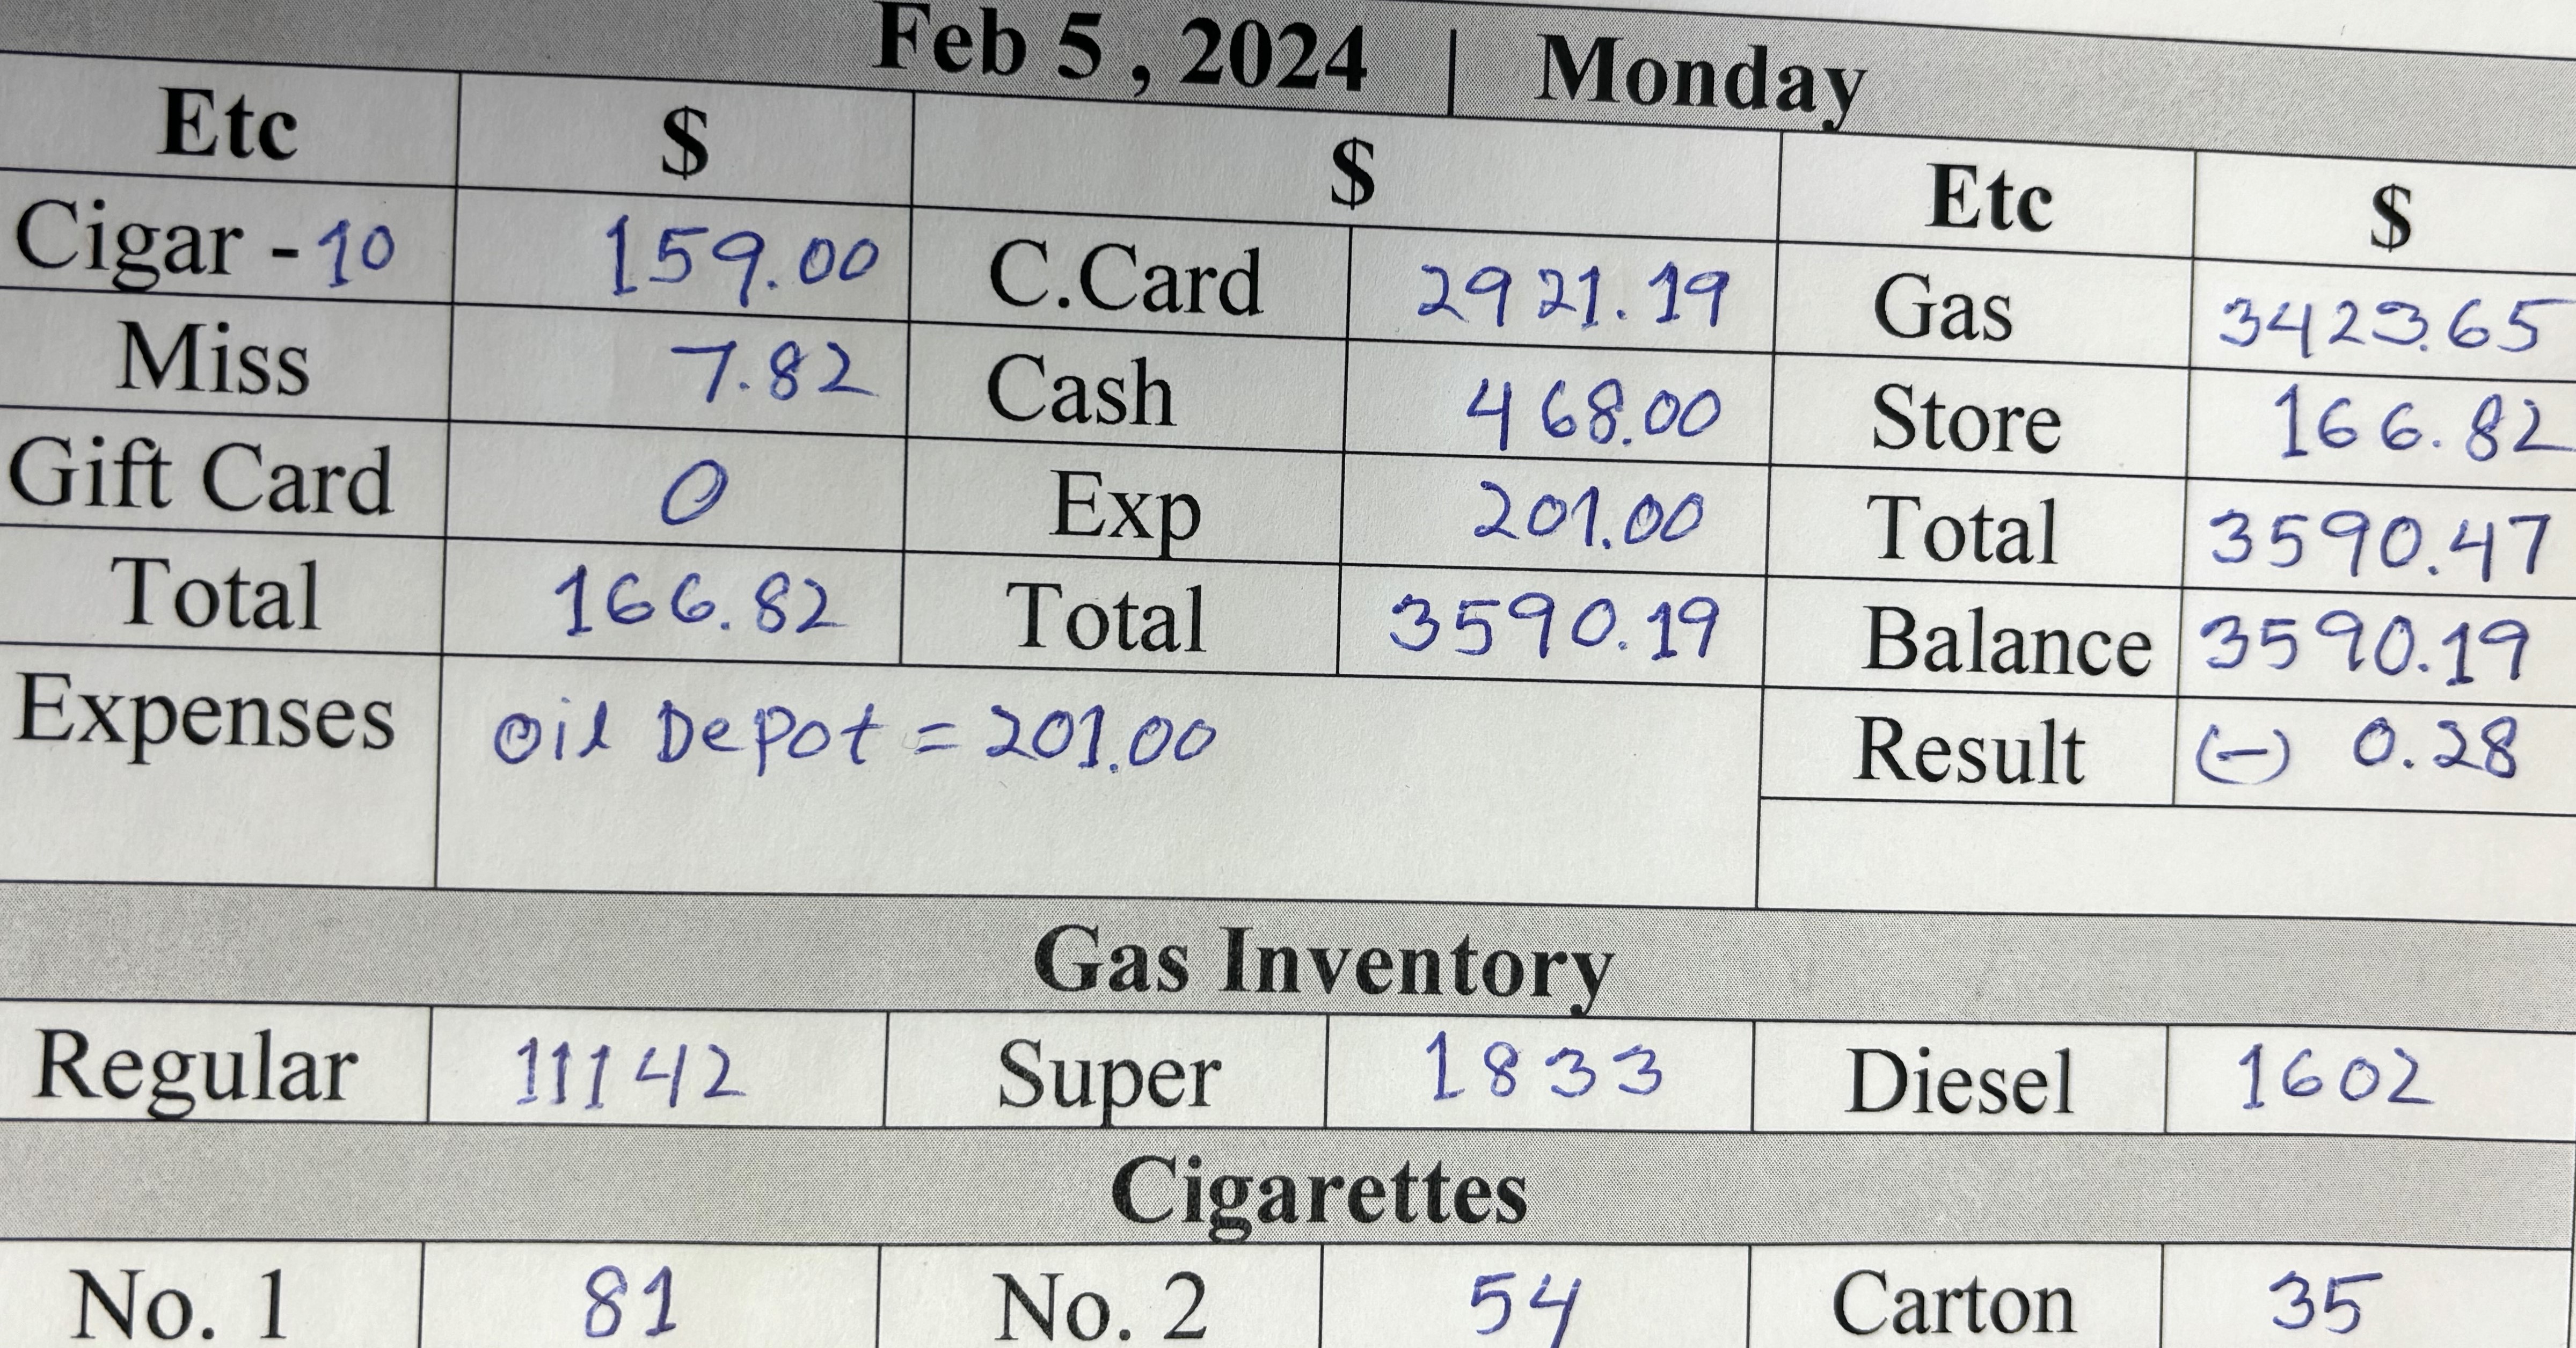 Feb 5 , 2024 | Monday
Etc $ $ Etc $
Cigar - 10 159.00 C.Card 2921.19 Gas 3423.65
Miss 7.82 Cash 468.00 Store 166.82
Gift Card 0 Exp 201.00 Total 3590.47
Total 166.82 Total 3590.19 Balance 3590.19
Expenses Oil Depot = 201.00 Result (-) 0.28
Gas Inventory
Regular 11142 Super 1833 Diesel 1602
Cigarettes
No. 1 81 No. 2 54 Carton 35